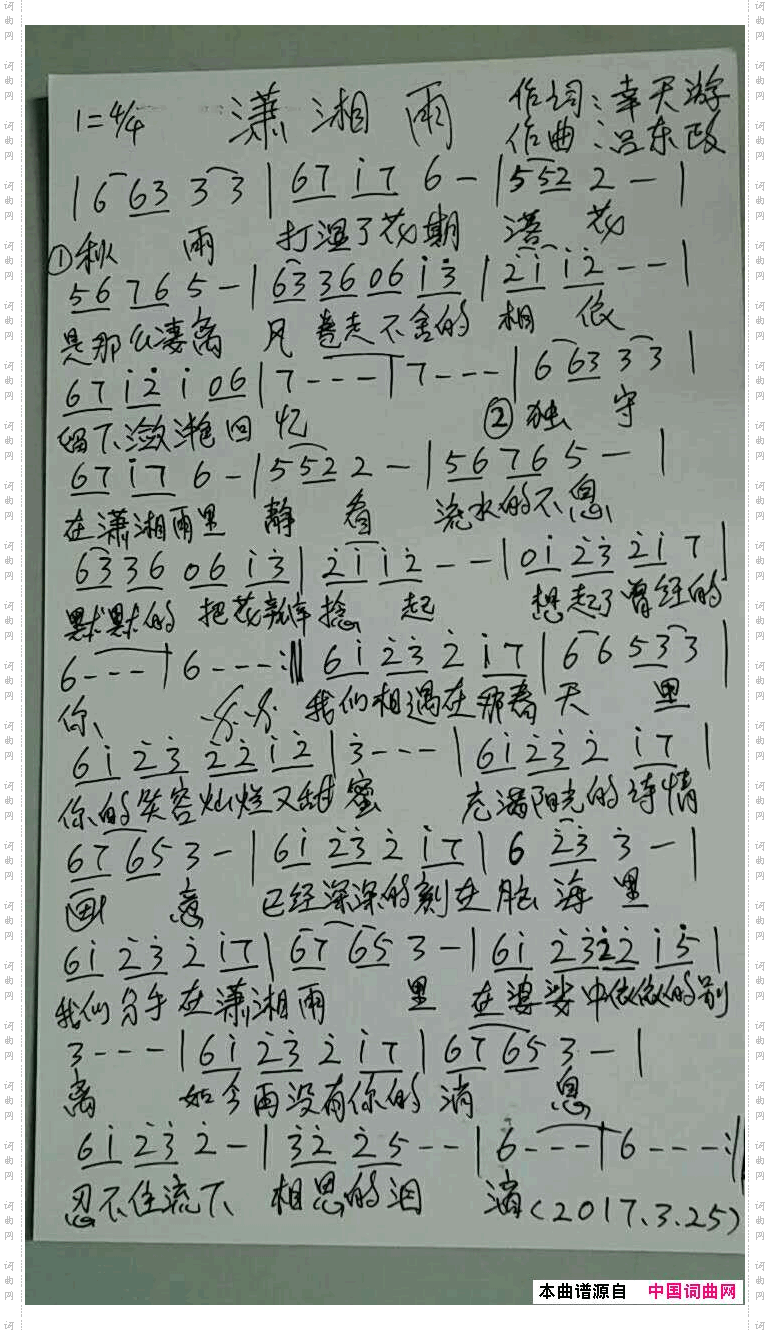 1=4/4 潇湘雨 作词:幸天游
作曲:吕东政
| 6 63 3 3 | 67 i7 6 - | 5 52 2 - |
①秋 雨 打湿了花期 落 花
56 76 5 - | 63 36 06 i3 | 2i i2 - - |
是那么凄离 风 卷走不舍的 相 依
67 i2 i 06 | 7 - - - | 7 - - - | 6 63 3 3 |
留下潋滟回 忆 ②独 守
67 i7 6 - | 5 52 2 - | 56 76 5 - |
在潇湘雨里 静 看 流水的不息
63 36 06 i3 | 2i i2 - - | 0i 23 2i 7 |
默默的 把花瓣 捻 起 想起了曾经的
6 - - - | 6 - - - :|| 6i 23 2 i7 | 6 6 53 3 |
你 我们相遇在那春 天 里
6i 23 22 i2 | 3 - - - | 6i 23 2 i7 |
你的笑容灿烂又甜 蜜 充满阳光的诗情
67 65 3 - | 6i 23 2 i7 | 6 23 3 - |
画 意 已经深深的刻在 脑 海 里
6i 23 2 i7 | 67 65 3 - | 6i 2322 i5 |
我们分手在潇湘雨 里 在婆娑中依依的别
3 - - - | 6i 23 2 i7 | 67 65 3 - |
离 如今再没有你的 消 息
6i 23 2 - | 32 25 - - | 6 - - - | 6 - - - :||
忍不住流下 相思的泪 滴(2017.3.25)
本曲谱源自 中国词曲网